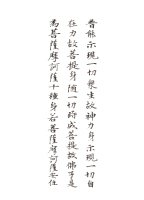 普能示現一切衆生故神力身示現一切自
在力故菩提身隨一切時成菩提故佛子是
為菩薩摩訶薩十種身若菩薩摩訶薩安住